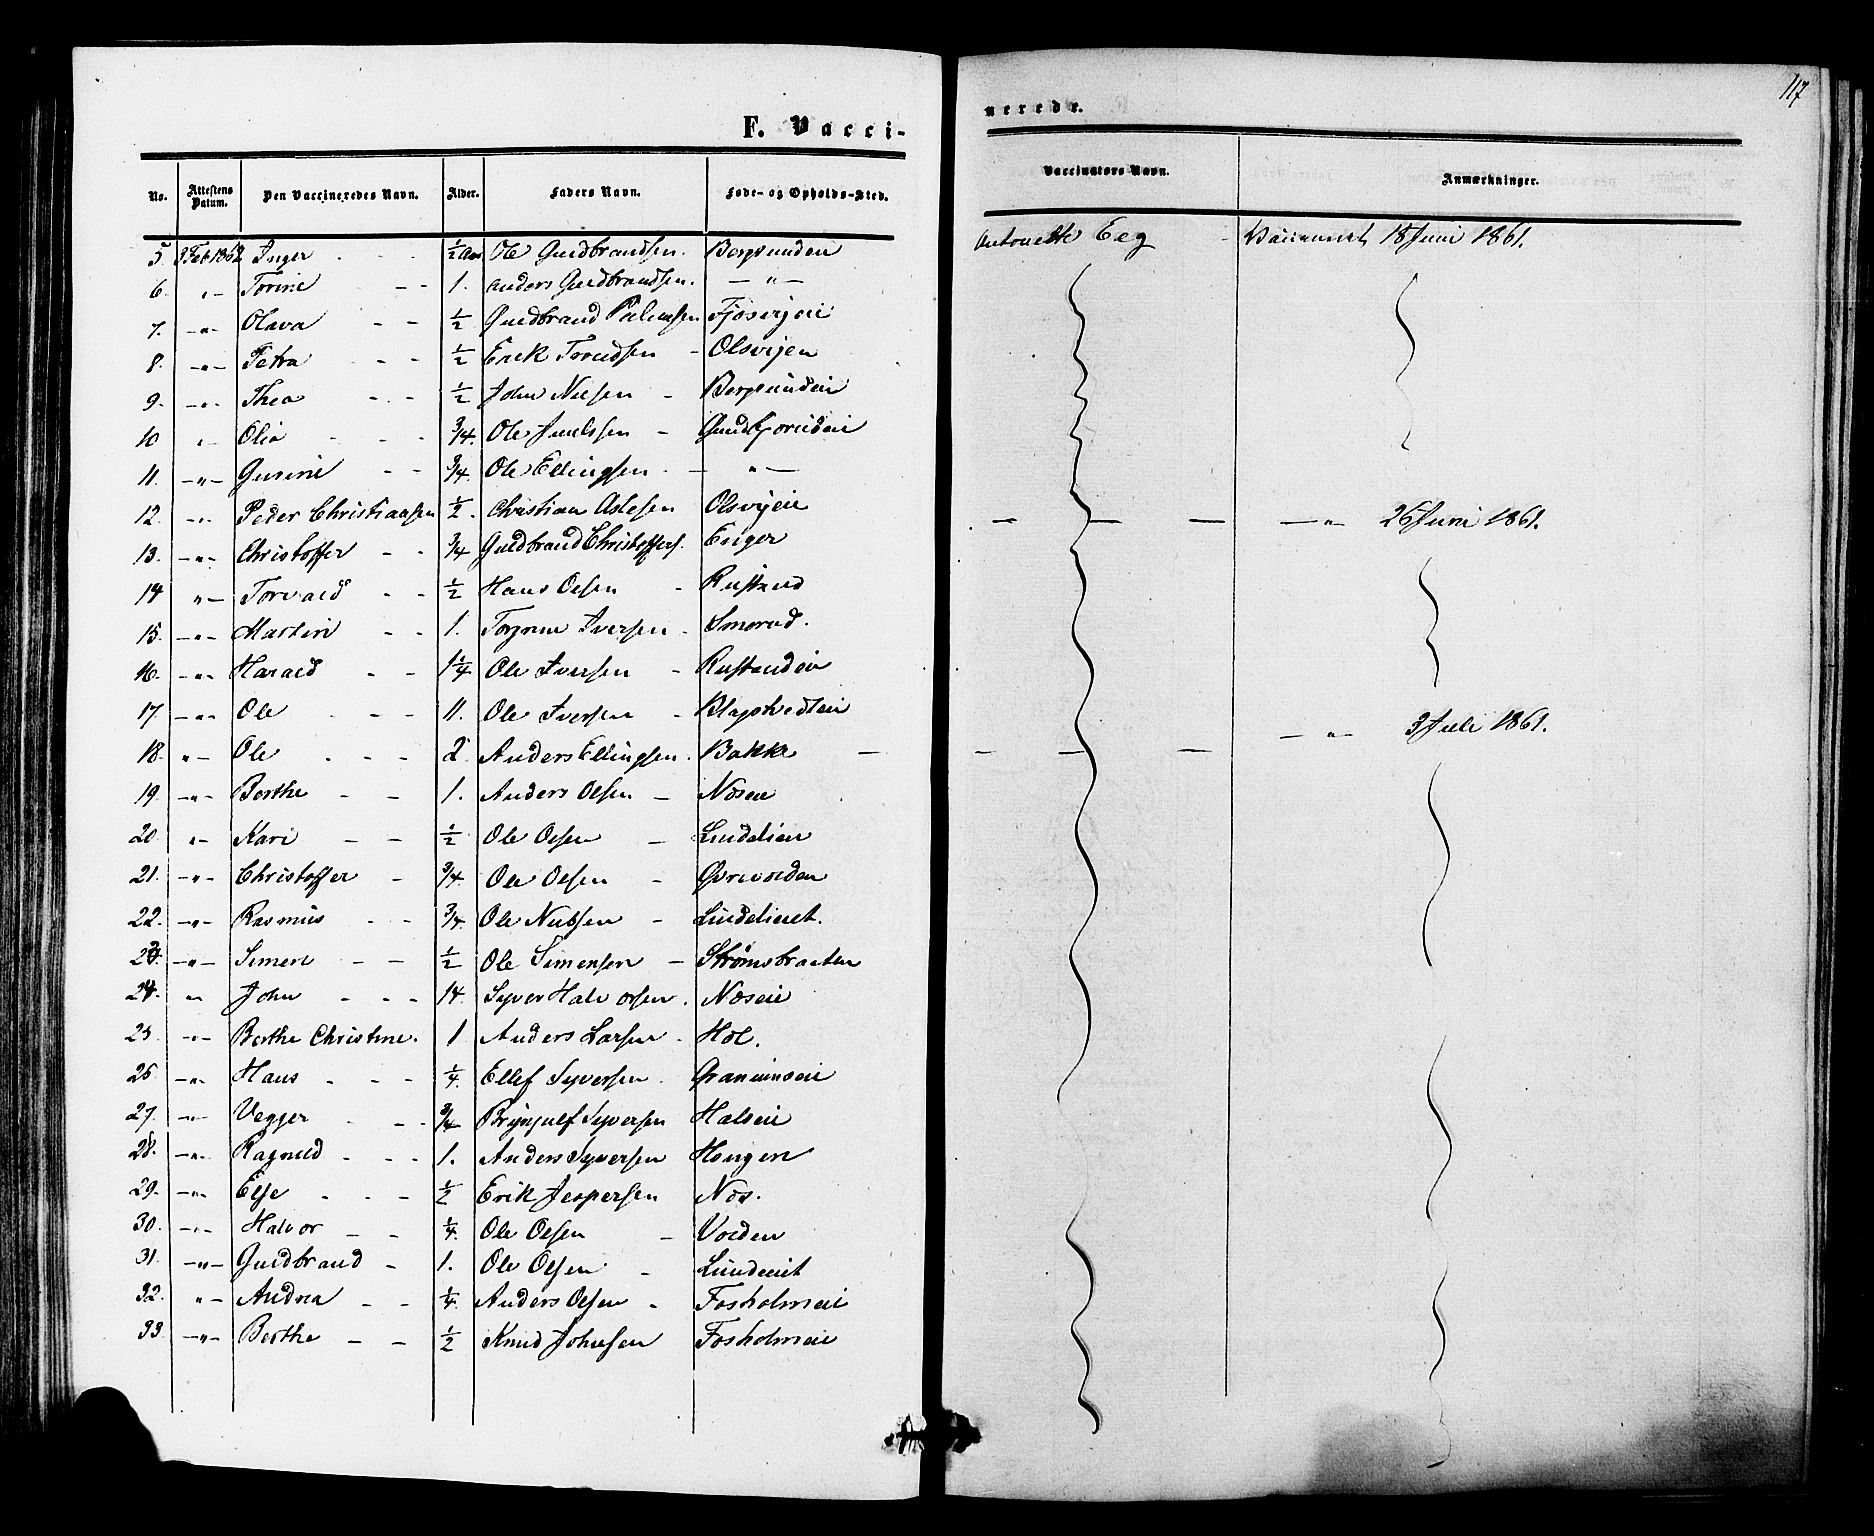 117
F. Vaccinerede.
No. Attestens Datum. Den Vaccineredes Navn. Alder. Faders Navn. Føde- og Opholds-Sted. Vaccinators Navn. Anmærkninger.
5. 3 Feb 1862 Inger - - - ½ Aar Ole Guldbrandsen. Bergsunden Antonette Eeg - Vaccineret 18 Juni 1861.
6. " - Torine - - 1. Anders Guldbrandsen. - " -
7. - " - Olava - - ½ Guldbrand Fjøsvigeie
8. - " - Petra - - ½ Erik - Olsvigen
9. - " - Thea - - ½ John Nilsen - Bergsundeie
10 " - Olia - - ¾. Ole -
11. - " - Gurine - - ¾. Ole Ellingsen. - " -
12. - " - Peder Christiansen ½. Christian Aslesen Olsvigeie - - - - " - 26 Juni 1861.
13. - " - Christoffer - - ¾ Guldbrand Christoffers. Enger
14 " - Torvald - - ½ Hans Olsen - Rustand
15. - " - Martin - - 1. Iversen - Smorud.
16. - " - Harald - - 1¼ Ole Iversen - Rustandeie
17. - " - Ole - - - 11. Ole Iversen -
18. " - Ole - - - 2 Anders Ellingsen. Bakke - - - - - " - 3 Juli 1861.
19. - " - Berthe - - 1. Anders Olsen - Næseie
20. " - Kari - - ½ Ole Olsen - Lindelien
21. - " - Christoffer - ¾. Ole Olsen - Øvrevolden
22. - " - Rasmus - - ¾. Ole Nubsen - Lindelieeet.
23. - " - Simen - - ½ Ole Simensen - Strømsbraaten
24. " John - - - 14. Syver Halvorsen. Næseie
25 - " - Berthe Christine. 1 Anders Larsen - Hol.
26. - " - Hans - - - ¼. Ellef Syversen. Granumseie
27. - " - Vegger - - - ¾ Brynjulf Syversen Halseie
28. - " - Ragnild - - - 1. Anders Syversen Haugen
29. - " - Else - - - ½ Erik Jespersen Næs.
30. - " - Halvor - - ¼. Ole Olsen - Volden
31. - " - Guldbrand - 1. Ole Olsen - Lundeeiet
32. " - Andrea - - ¼. Anders Olsen - Fosholmeie
33. - " - Berthe - - ½ Knud Johnsen Fosholmeie